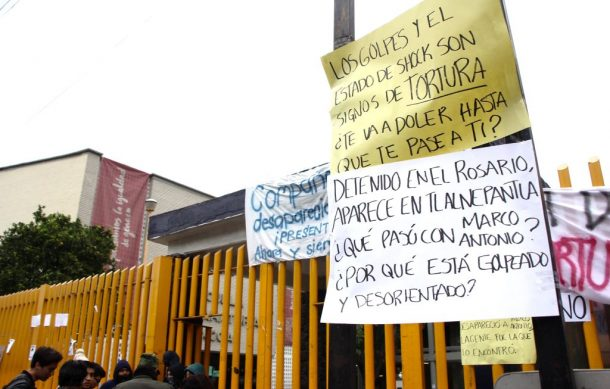 LOS GOLPES Y EL
ESTADO DE SHOCK SON
SIGNOS DE TORTURA
¿TE VA A DOLER HASTA
QUE TE PASE A TI?
DETENIDO EN EL ROSARIO,
APARECE EN TLALNEPANTLA
¿QUÉ PASÓ CON MARCO
ANTONIO?
¿POR QUÉ ESTÁ GOLPEADO
Y DESORIENTADO?
desaparecido
¡PRESENT
Ahora! y siem
la igualdad
de género
NO
MARCO
ANTONIO,
LA GENTE FUE LA QUE
LO ENCONTRÓ